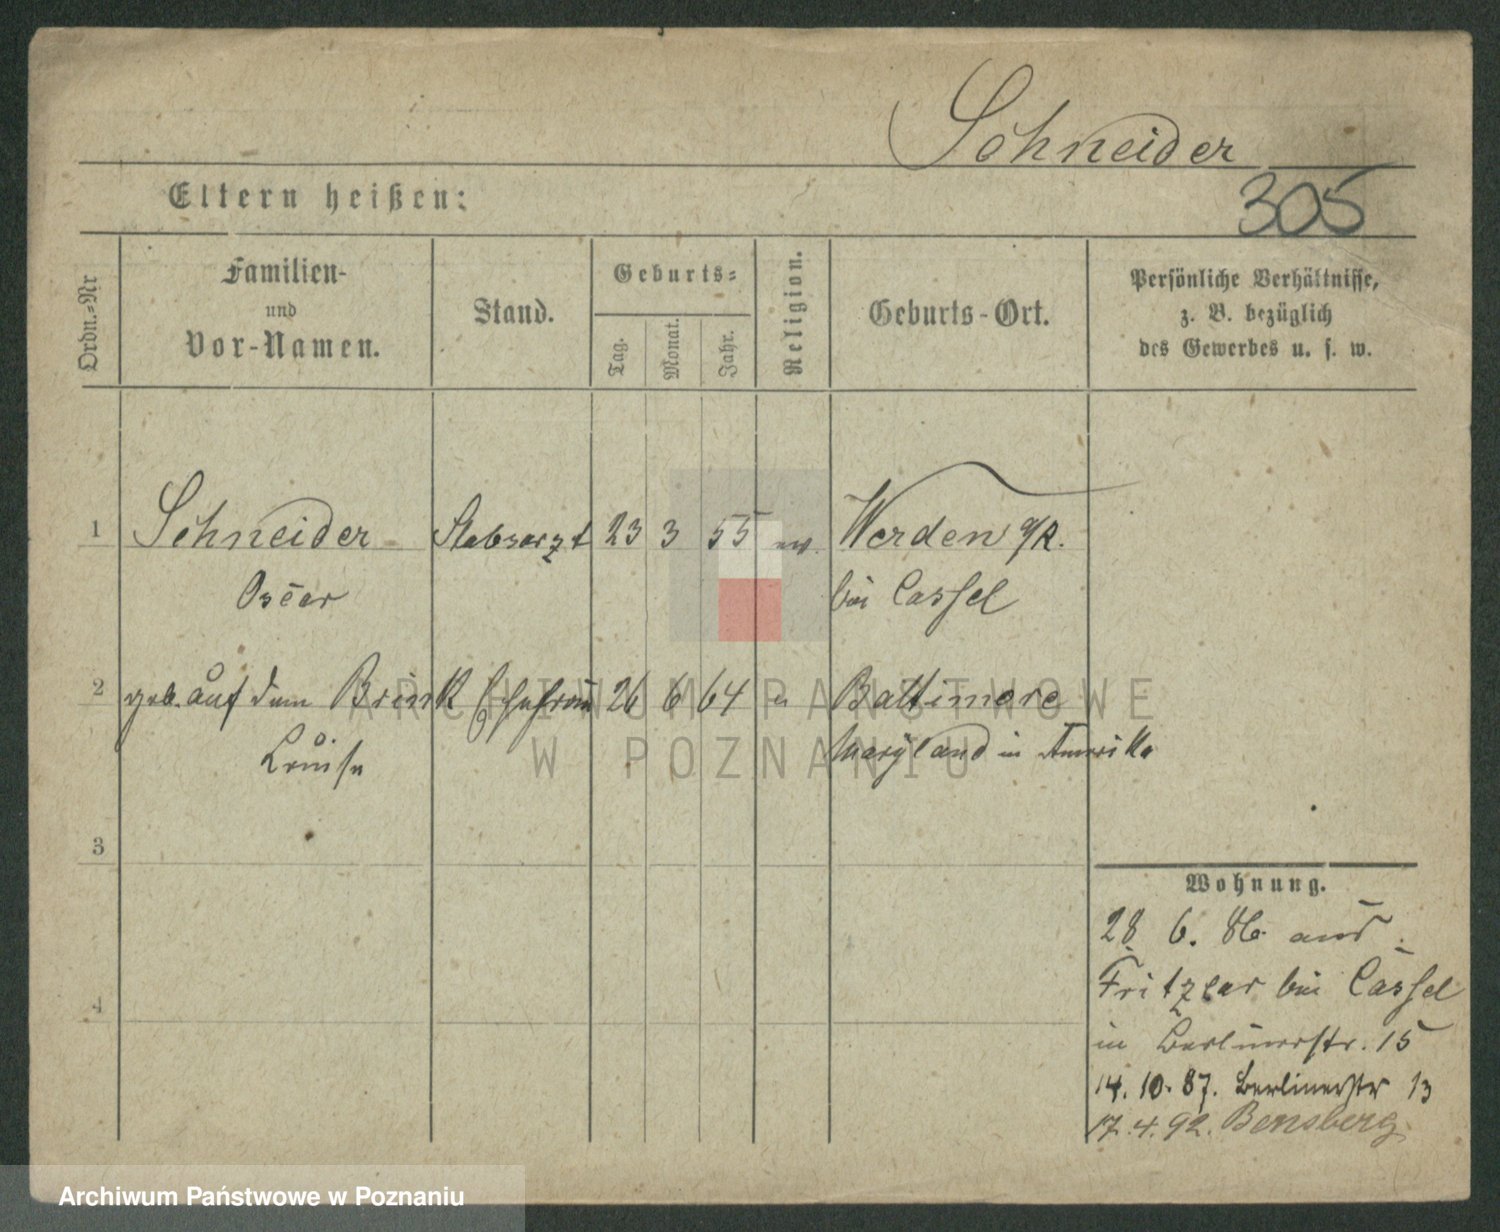 Schneider
305
Eltern heißen:
Ordn.=Nr
Familien-
und
Vor-Namen.
Stand.
Geburts=
Tag.
Monat.
Jahr.
Religion.
Geburts-Ort.
Persönliche Verhältnisse,
z. B. bezüglich
des Gewerbes u. s. w.
1 Schneider Stabsarzt 23 3 55 ev. Werden a/R.
Oscar bei Cassel
2 geb. auf dem Brink Ehefrau 26 6 64 e Baltimore
Louise Maryland in Amerika
3
4
Wohnung.
28. 6. 86 aus
Fritzlar bei Cassel
in Berlinerstr. 15
14. 10. 87. Berlinerstr 13
17. 4. 92. Bensberg
ARCHIWUM PAŃSTWOWE
W POZNANIU
Archiwum Państwowe w Poznaniu